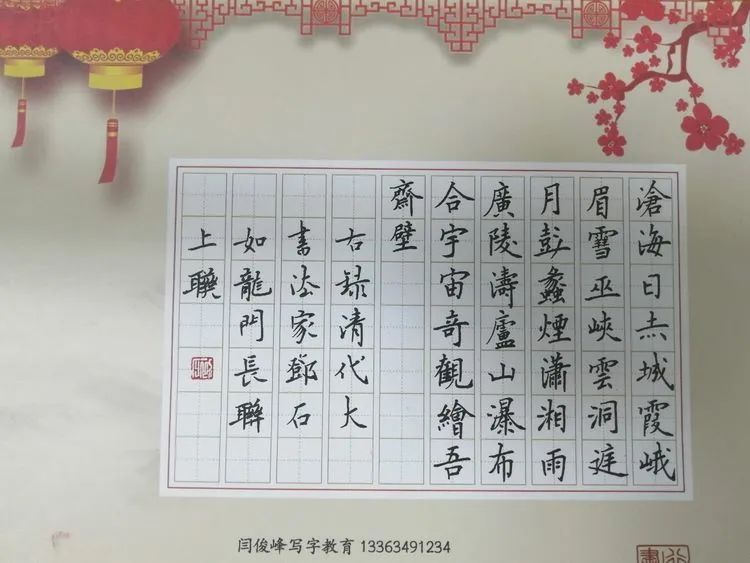 滄海日赤城霞峨
眉雪巫峽雲洞庭
月彭蠡煙瀟湘雨
廣陵濤廬山瀑布
合宇宙奇觀繪吾
齋壁
右録清代大
書法家鄧石
如龍門長聯
上聯
闫俊峰写字教育 13363491234